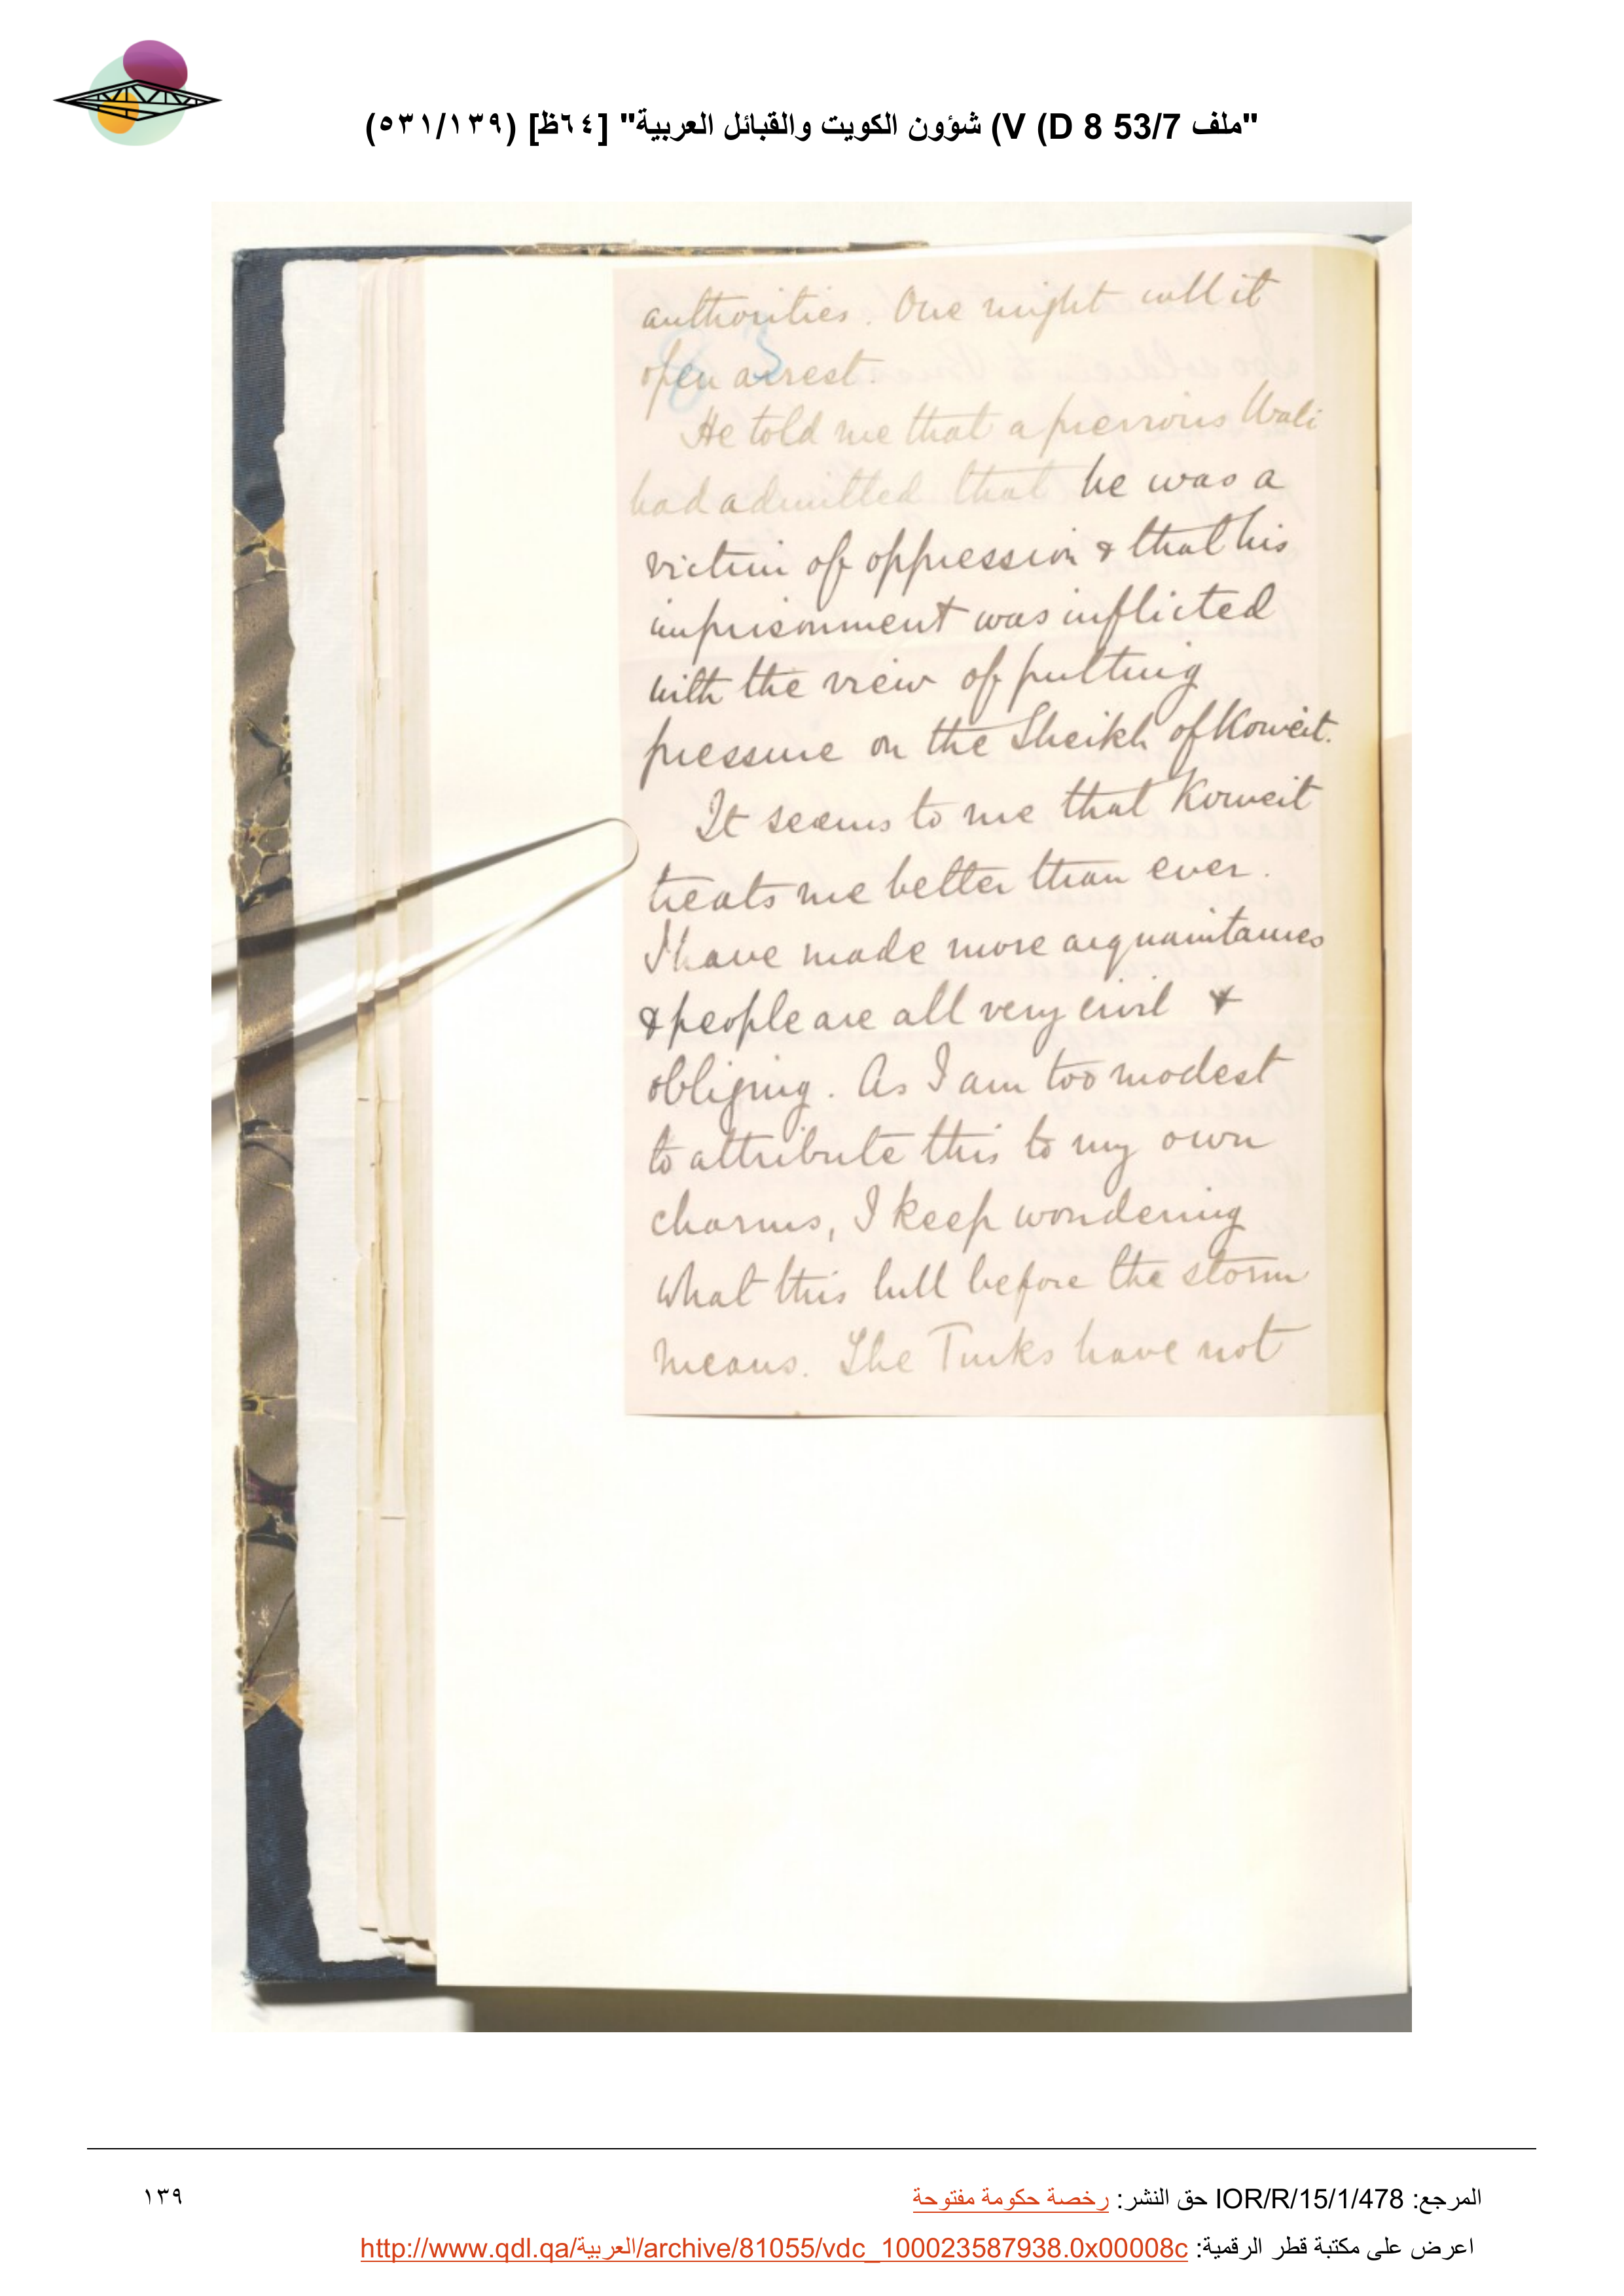 "ملف 53/7 D 8 (V) شؤون الكويت والقبائل العربية" [٦٤ظ] (٥٣١/١٣٩)
authorities. One might call it
open arrest.
He told me that a previous Wali
had admitted that he was a
victim of oppression & that his
imprisonment was inflicted
with the view of putting
pressure on the Sheikh of Koweit.
It seems to me that Koweit
treats me better than ever.
I have made more acquaintances
& people are all very civil &
obliging. As I am too modest
to attribute this to my own
charms, I keep wondering
what this lull before the storm
means. The Turks have not
المرجع: IOR/R/15/1/478 حق النشر: رخصة حكومة مفتوحة
١٣٩
اعرض على مكتبة قطر الرقمية: http://www.qdl.qa/العربية/archive/81055/vdc_100023587938.0x00008c